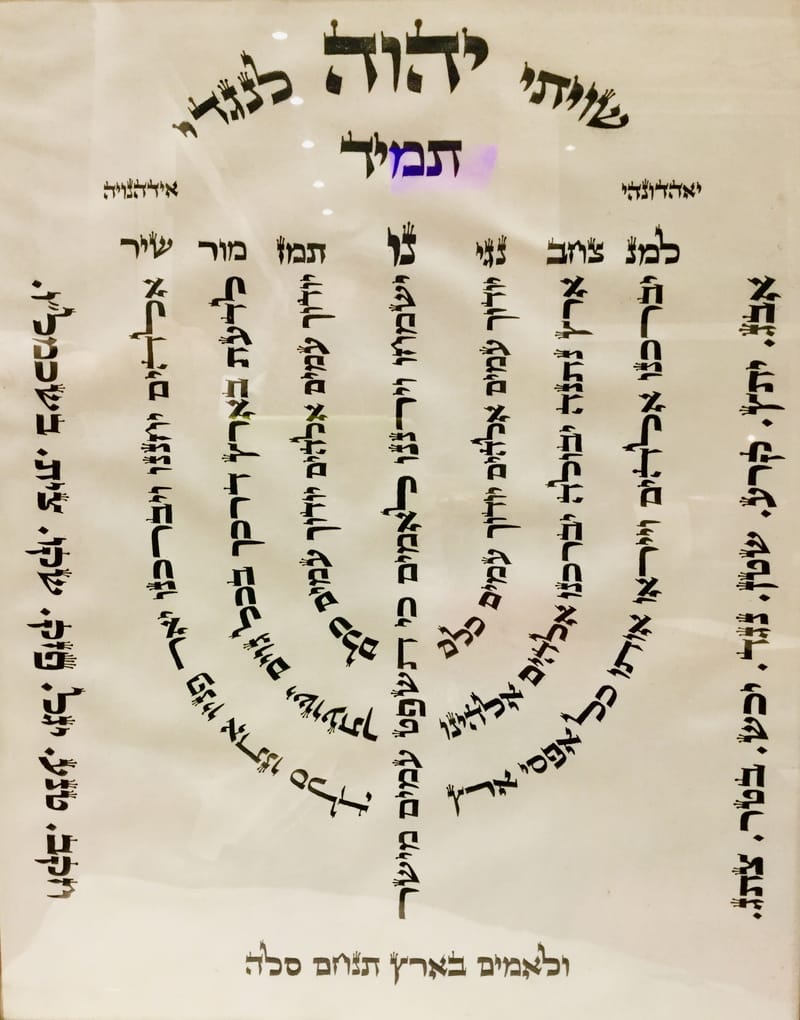 שויתי יהוה לנגדי
תמיד
יאהדונהי אידהנויה
למנ צחב נגי נו תמז מור שיר
אבג. יתץ. קרע. שטן. נגד. יכש. בטר. צתג.
יברכנו אלהים וייראו אותו כל אפסי ארץ
ארץ נתנה יבולה יברכנו אלהים אלהינו
יודוך עמים אלהים יודוך עמים כלם
ישמחו וירננו לאמים כי תשפט עמים מישר
יודוך עמים אלהים יודוך עמים כלם
לדעת בארץ דרכך בכל גוים ישועתך
אלהים יחננו ויברכנו יאר פניו אתנו סלה
חקב. טנע. יגל. פזק. שקו. צית. בשכמל"ו.
ולאמים בארץ תנחם סלה